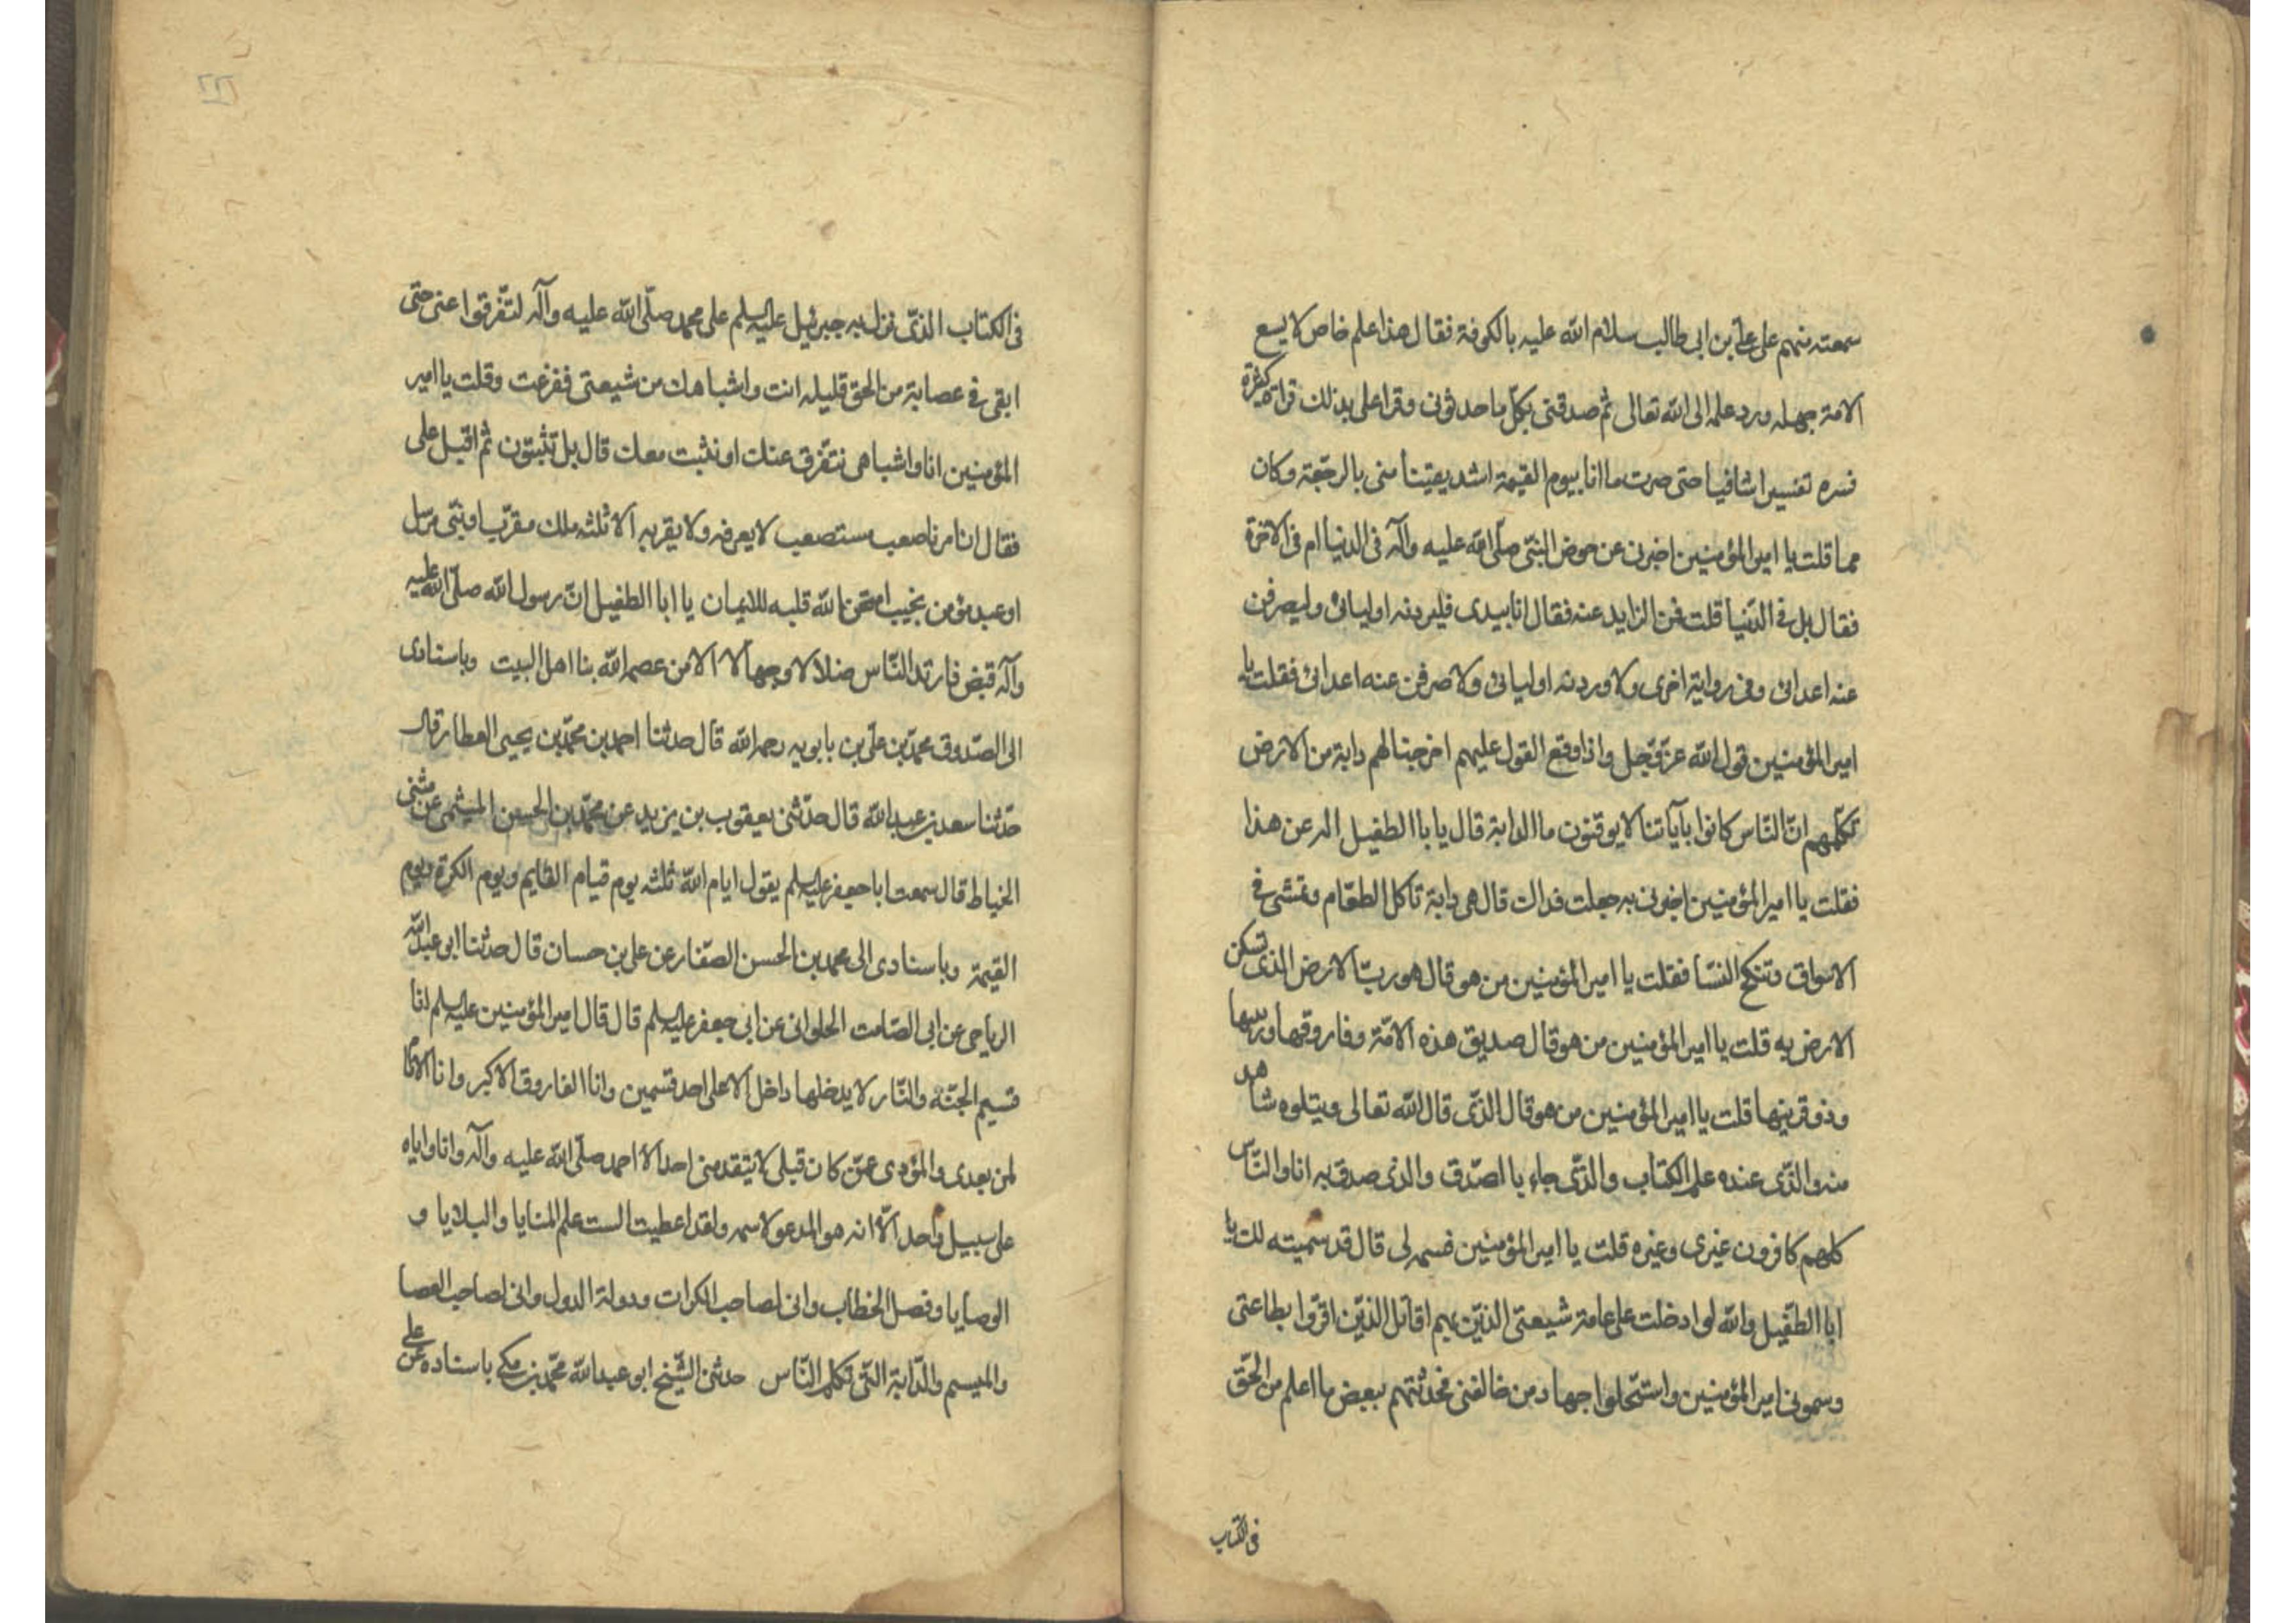 سمعته منهم على على بن ابى طالب سلام الله عليه بالكوفة فقال هذا علم خاص لا يسع
الامة جهله ورد علمه الى الله تعالى ثم صدقنى بكلّ ما حدثونى وقرا على بذلك قراة كثيرة
فسره تفسيرا شافيا حتى صرت ما انا بيوم القيمة اشد يقينا منى بالرجعة وكان
مما قلت يا امير المؤمنين اخبرنى عن حوض النبّى صلّى الله عليه وآله فى الدنيا ام فى الاخرة
فقال بل فى الدّنيا قلت فمن الزايد عنه فقال انا بيدى فليردنه اوليائى وليصرفن
عنه اعدائى وفى رواية اخرى ولاوردنه اوليائى ولاصرفن عنه اعدائى فقلت يا
امير المؤمنين قول الله عزّ وجّل واذا وقع القول عليهم اخرجنا لهم دابة من الارض
تكلّمهم انّ النّاس كانوا بآياتنا لا يوقنون ما الدابة قال يا با الطفيل اله عن هذا
فقلت يا امير المؤمنين اخبرنى به جعلت فداك قال هى دابة تاكل الطعّام وتمشى فى
الاسواق وتنكح النسّا فقلت يا امير المؤمنين من هو قال هو ربّ الارض الذى تسكن
الارض به قلت يا امير المؤمنين من هو قال صديق هذه الامّة وفاروقها وربيها
وذو قرينها قلت يا امير المؤمنين من هو قال الذّى قال الله تعالى ويتلوه شاهد
منه والذّى عنده علم الكتاب والذّى جاء بالصّدق والذى صدق به انا والنّاس
كلهم كافرون غيرى وغيره قلت يا امير المؤمنين فسمه لى قال قد سميته لك يا
ابا الطفّيل والله لو ادخلت على عامة شيعتى الذيّن بهم اقاتل الذيّن اقرّوا بطاعتى
وسمونى امير المؤمنين واستحّلوا جهاد من خالفنى فحدثتهم ببعض ما اعلم من الحّق
فى الكتاب
فى الكتاب الذّى نزل به جبرئيل عليه السلم على محمد صلّى الله عليه وآله لتفّرقوا عنى حتى
ابقى فى عصابة من الحق قليله انت واشباهك من شيعتى ففزعت وقلت يا امير
المؤمنين انا واشباهى نتفّرق عنك او نثبت معك قال بل تثبتون ثم اقبل على
فقال ان امرنا صعب مستصعب لا يعرفه ولا يقربه الا ثلثه ملك مقرّب او نبّى مرسل
او عبد مؤمن نجيب امتحن الله قلبه للايمان يا ابا الطفيل انّ رسول الله صلّى الله عليه
وآله قبض فارتد النّاس ضلالا وجهالا الا من عصمه الله بنا اهل البيت وباسنادى
الى الصّدوق محمّد بن علّى بن بابويه رحمه الله قال حدثنا احمد بن محمّد بن يحيى العطار قال
حدّثنا سعد بن عبد الله قال حدّثنى يعقوب بن يزيد عن محمّد بن الحسن الميثمى عن مثنى
الخياط قال سمعت ابا جعفر عليه السلم يقول ايام الله ثلثه يوم قيام القايم ويوم الكرة ويوم
القيمة وباسنادى الى محمد بن الحسن الصفّار عن على بن حسان قال حدثنا ابو عبد الله
الرياحى عن ابى الصّامت الحلوانى عن ابى جعفر عليه السلم قال قال امير المؤمنين عليه السلم انا
قسيم الجنّة والنّار لا يدخلها داخل الا على احد قسمين وانا الفاروق الاكبر وانا الامام
لمن بعدى والمؤدى عمّن كان قبلى لا يتقدمنى احد الا احمد صلّى الله عليه وآله وانا واياه
على سبيل واحد الّا انه هو المدعو لاسمه ولقد اعطيت الست علم المنايا والبلايا و
الوصايا وفصل الخطاب وانى لصاحب الكرات ودولة الدول وانى لصاحب العصا
والميسم والدّابة التّى تكلم النّاس حدثنى الشّيخ ابو عبد الله محمّد بن مكى باسناده عن على